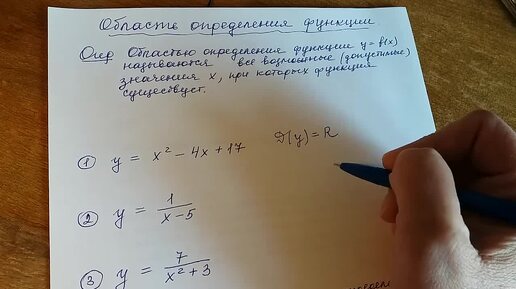 Область определения функции.
Опр Областью определения функции y = f(x)
называются все возможные (допустимые)
значения x, при которых функция
существует.
① y = x² − 4x + 17 D(y) = R
② y = 1/(x − 5)
③ y = 7/(x² + 3)